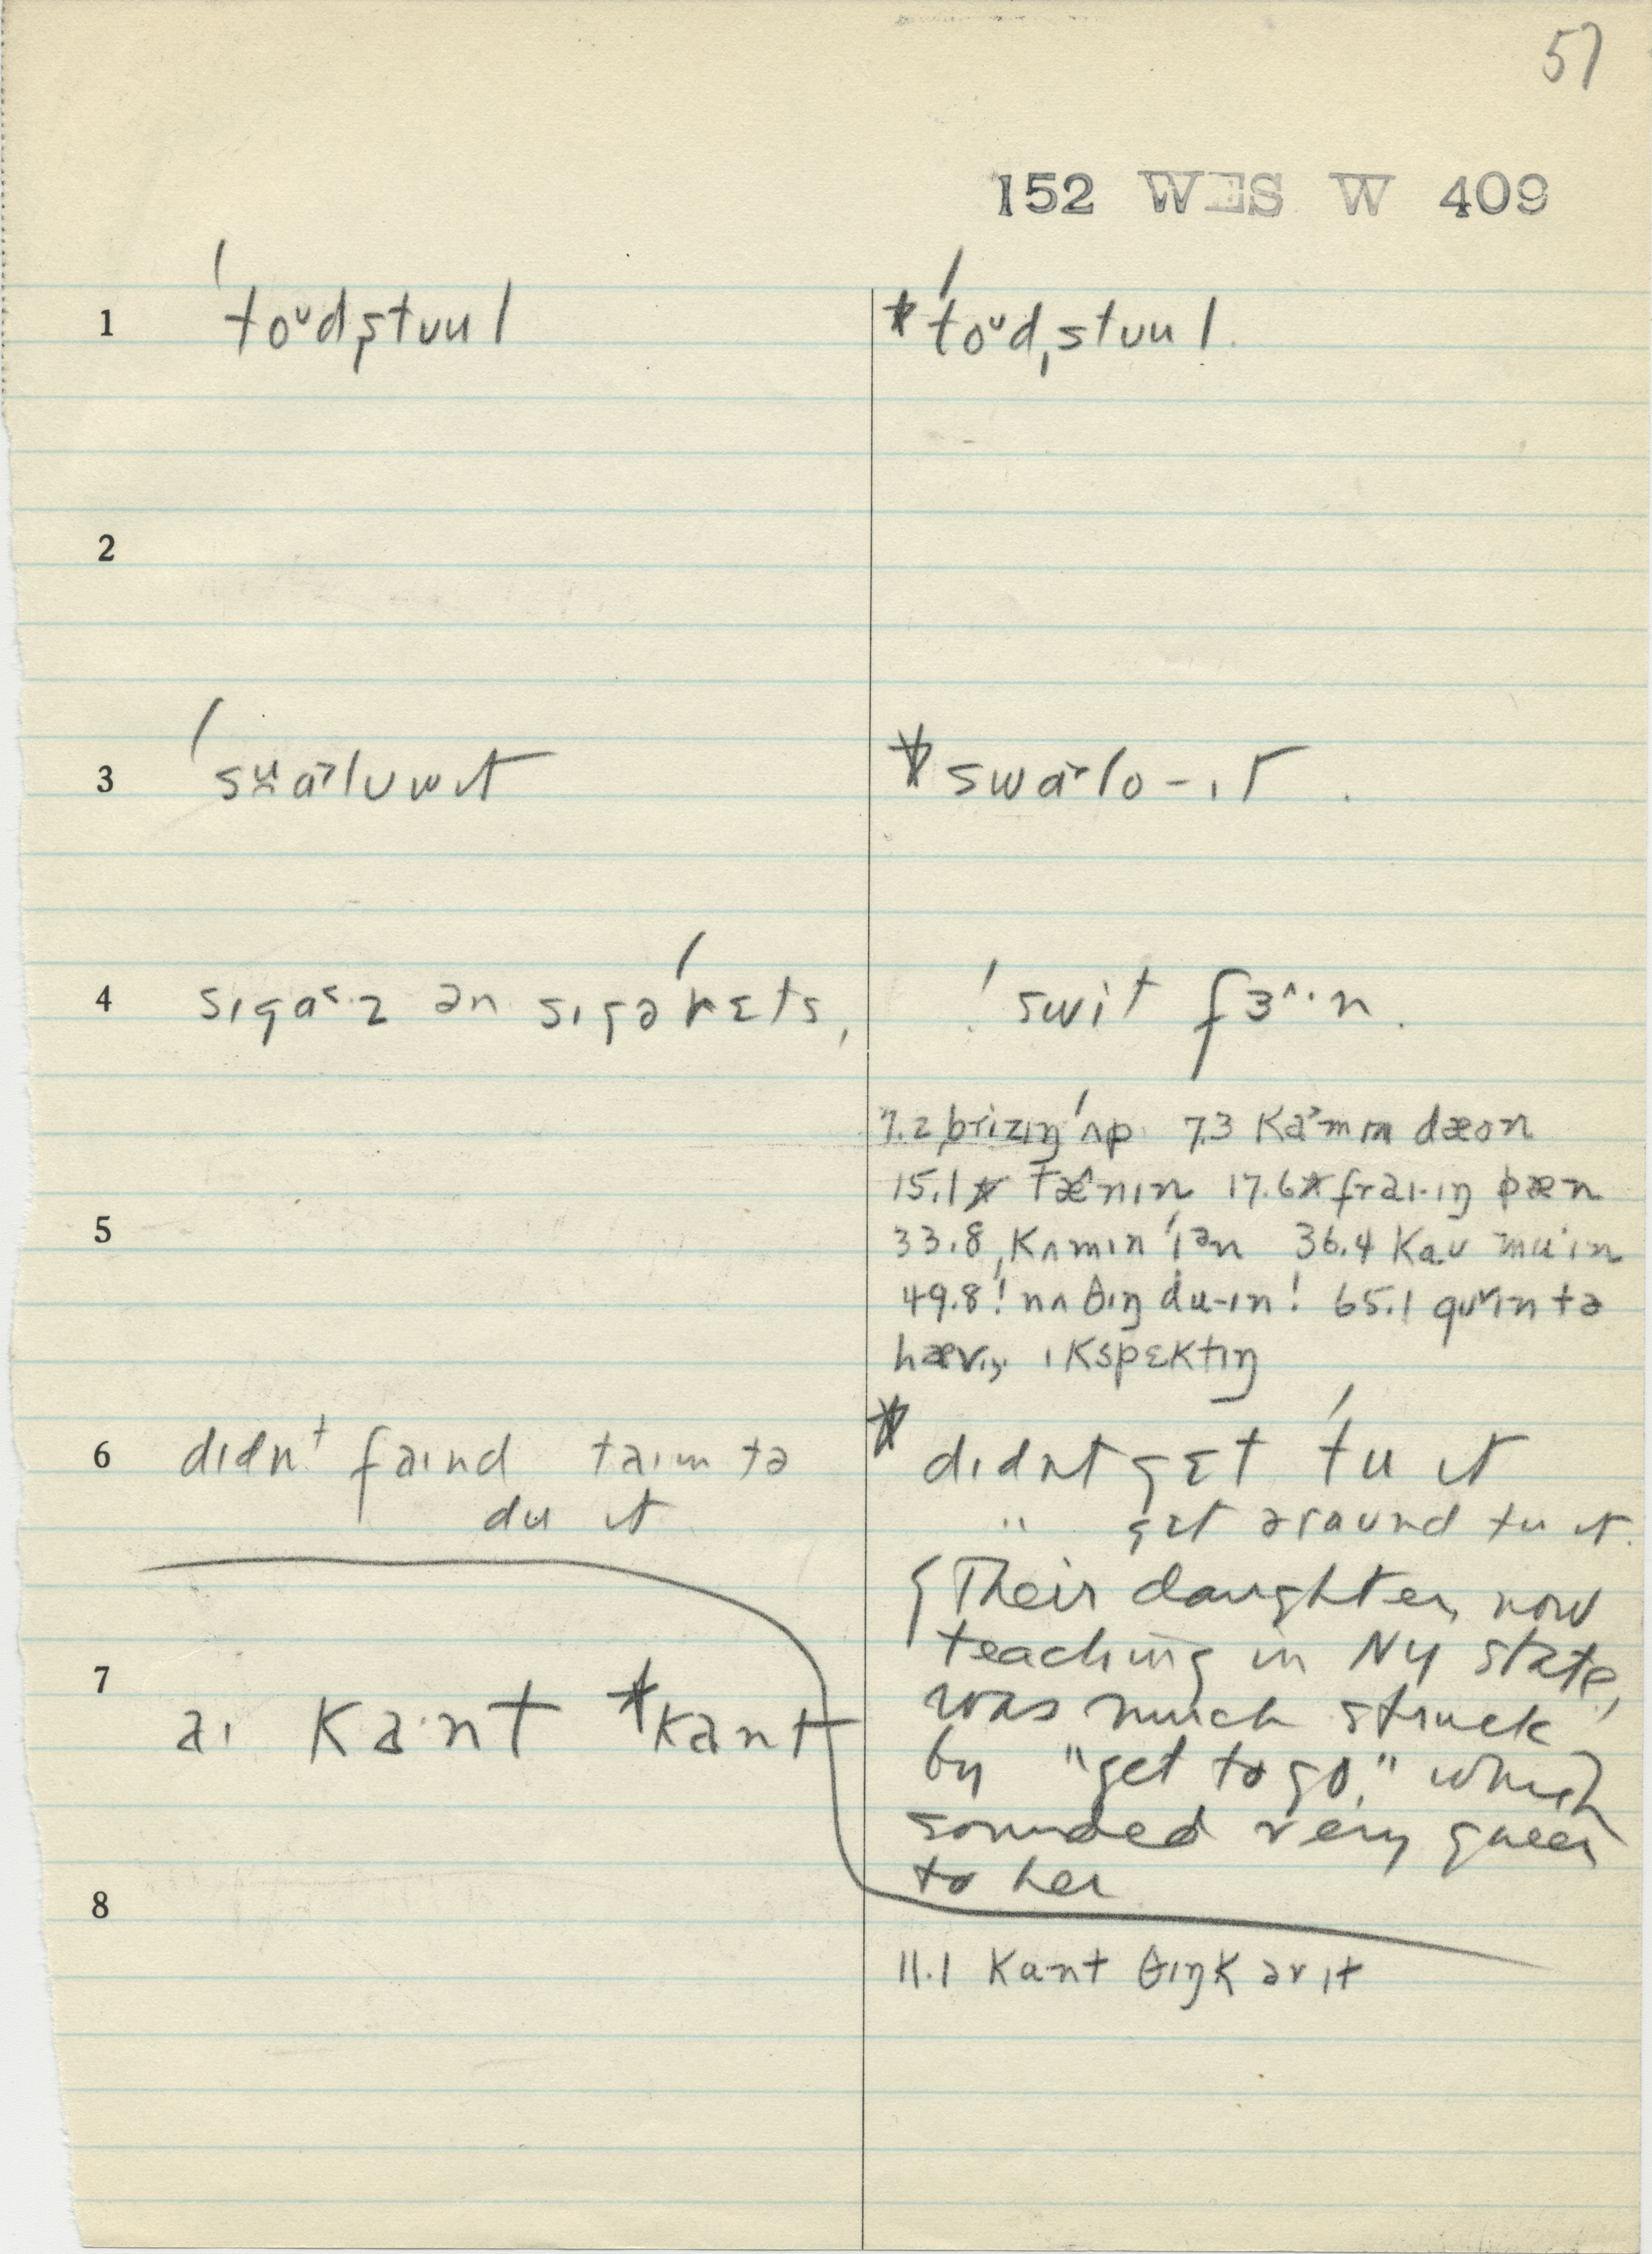 57
152 WES W 409
1 ˈtoᵘd̩ˌstʊul *ˈtoᵘdˌstʊul.
2
3 *swaʳlo-ɪt.
4 sɪgaˑz ən sɪgəˈrɛts, ˈswit fɜ^ˑn.
7.2 brizɪŋ ˈʌp 7.3 kaˑmɪn dæon
15.1* tænɪn 17.6* fraɪ-ɪŋ pæn
5 33.8 ˌkʌmɪn ˈɪən 36.4 kaʊ muˑɪn
49.8 ! nʌθɪŋ du-ɪn! 65.1 goˇɪn tə
hævɪŋ ɪkspɛktɪŋ
6 dɪdnt faɪnd taɪm tə * dɪdnt gɛt ˈtu ɪt
du ɪt " gɛt əraʊnd tu ɪt.
Their daughter, now
teaching in NY state,
7 aɪ kaˑnt *kant was much struck
by "get to go," which
sounded very queer
8 to her
11.1 kant θɪŋk əv ɪt